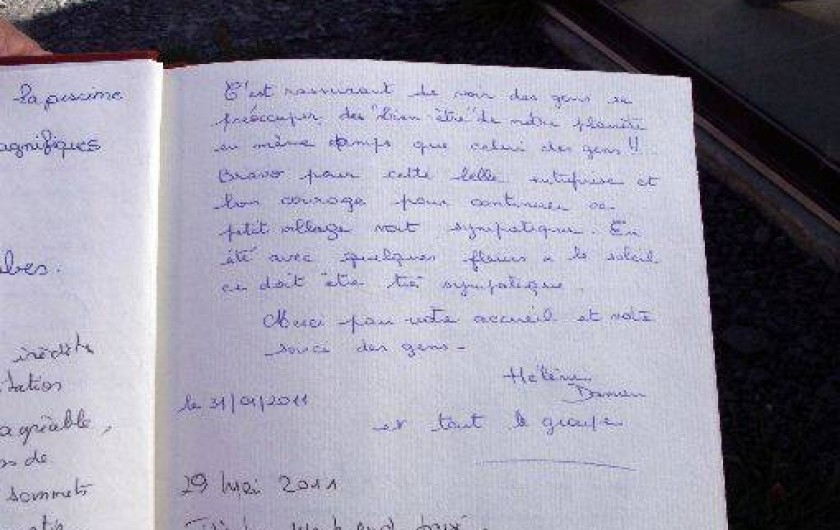 la piscine
agnifiques
bes.
inédite
tation
agréable,
s de
sommets
C'est rassurant de voir des gens se
préoccuper des "bien être" de notre planète
en même temps que celui des gens !!
Bravo pour cette belle entreprise et
bon courage pour continuer ce
petit village sympatique. En
été avec quelques fleurs à le soleil
ce doit être trè sympatique.
Merci pour votre accueil et votre
souci des gens -
Hélène
Damien
le 31/01/2011
et tout le groupe
29 Mai 2011